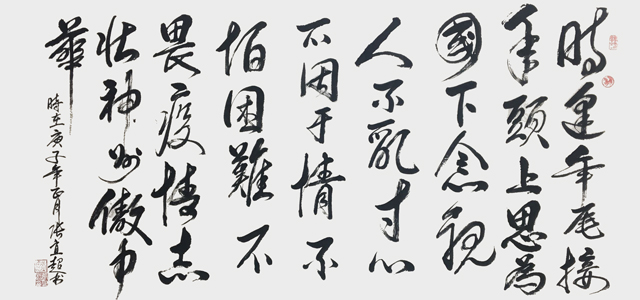 時逢年尾接
年頭上思為
國下念親
人不亂寸心
不困于情不
怕困難不
畏疫情志
壯神州傲中
華
時在庚子年正月張超书